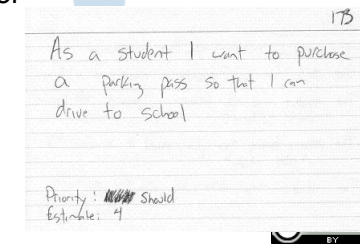 173
As a student I want to purchase
a parking pass so that I can
drive to school
Priority: Should
Estimate: 4
BY